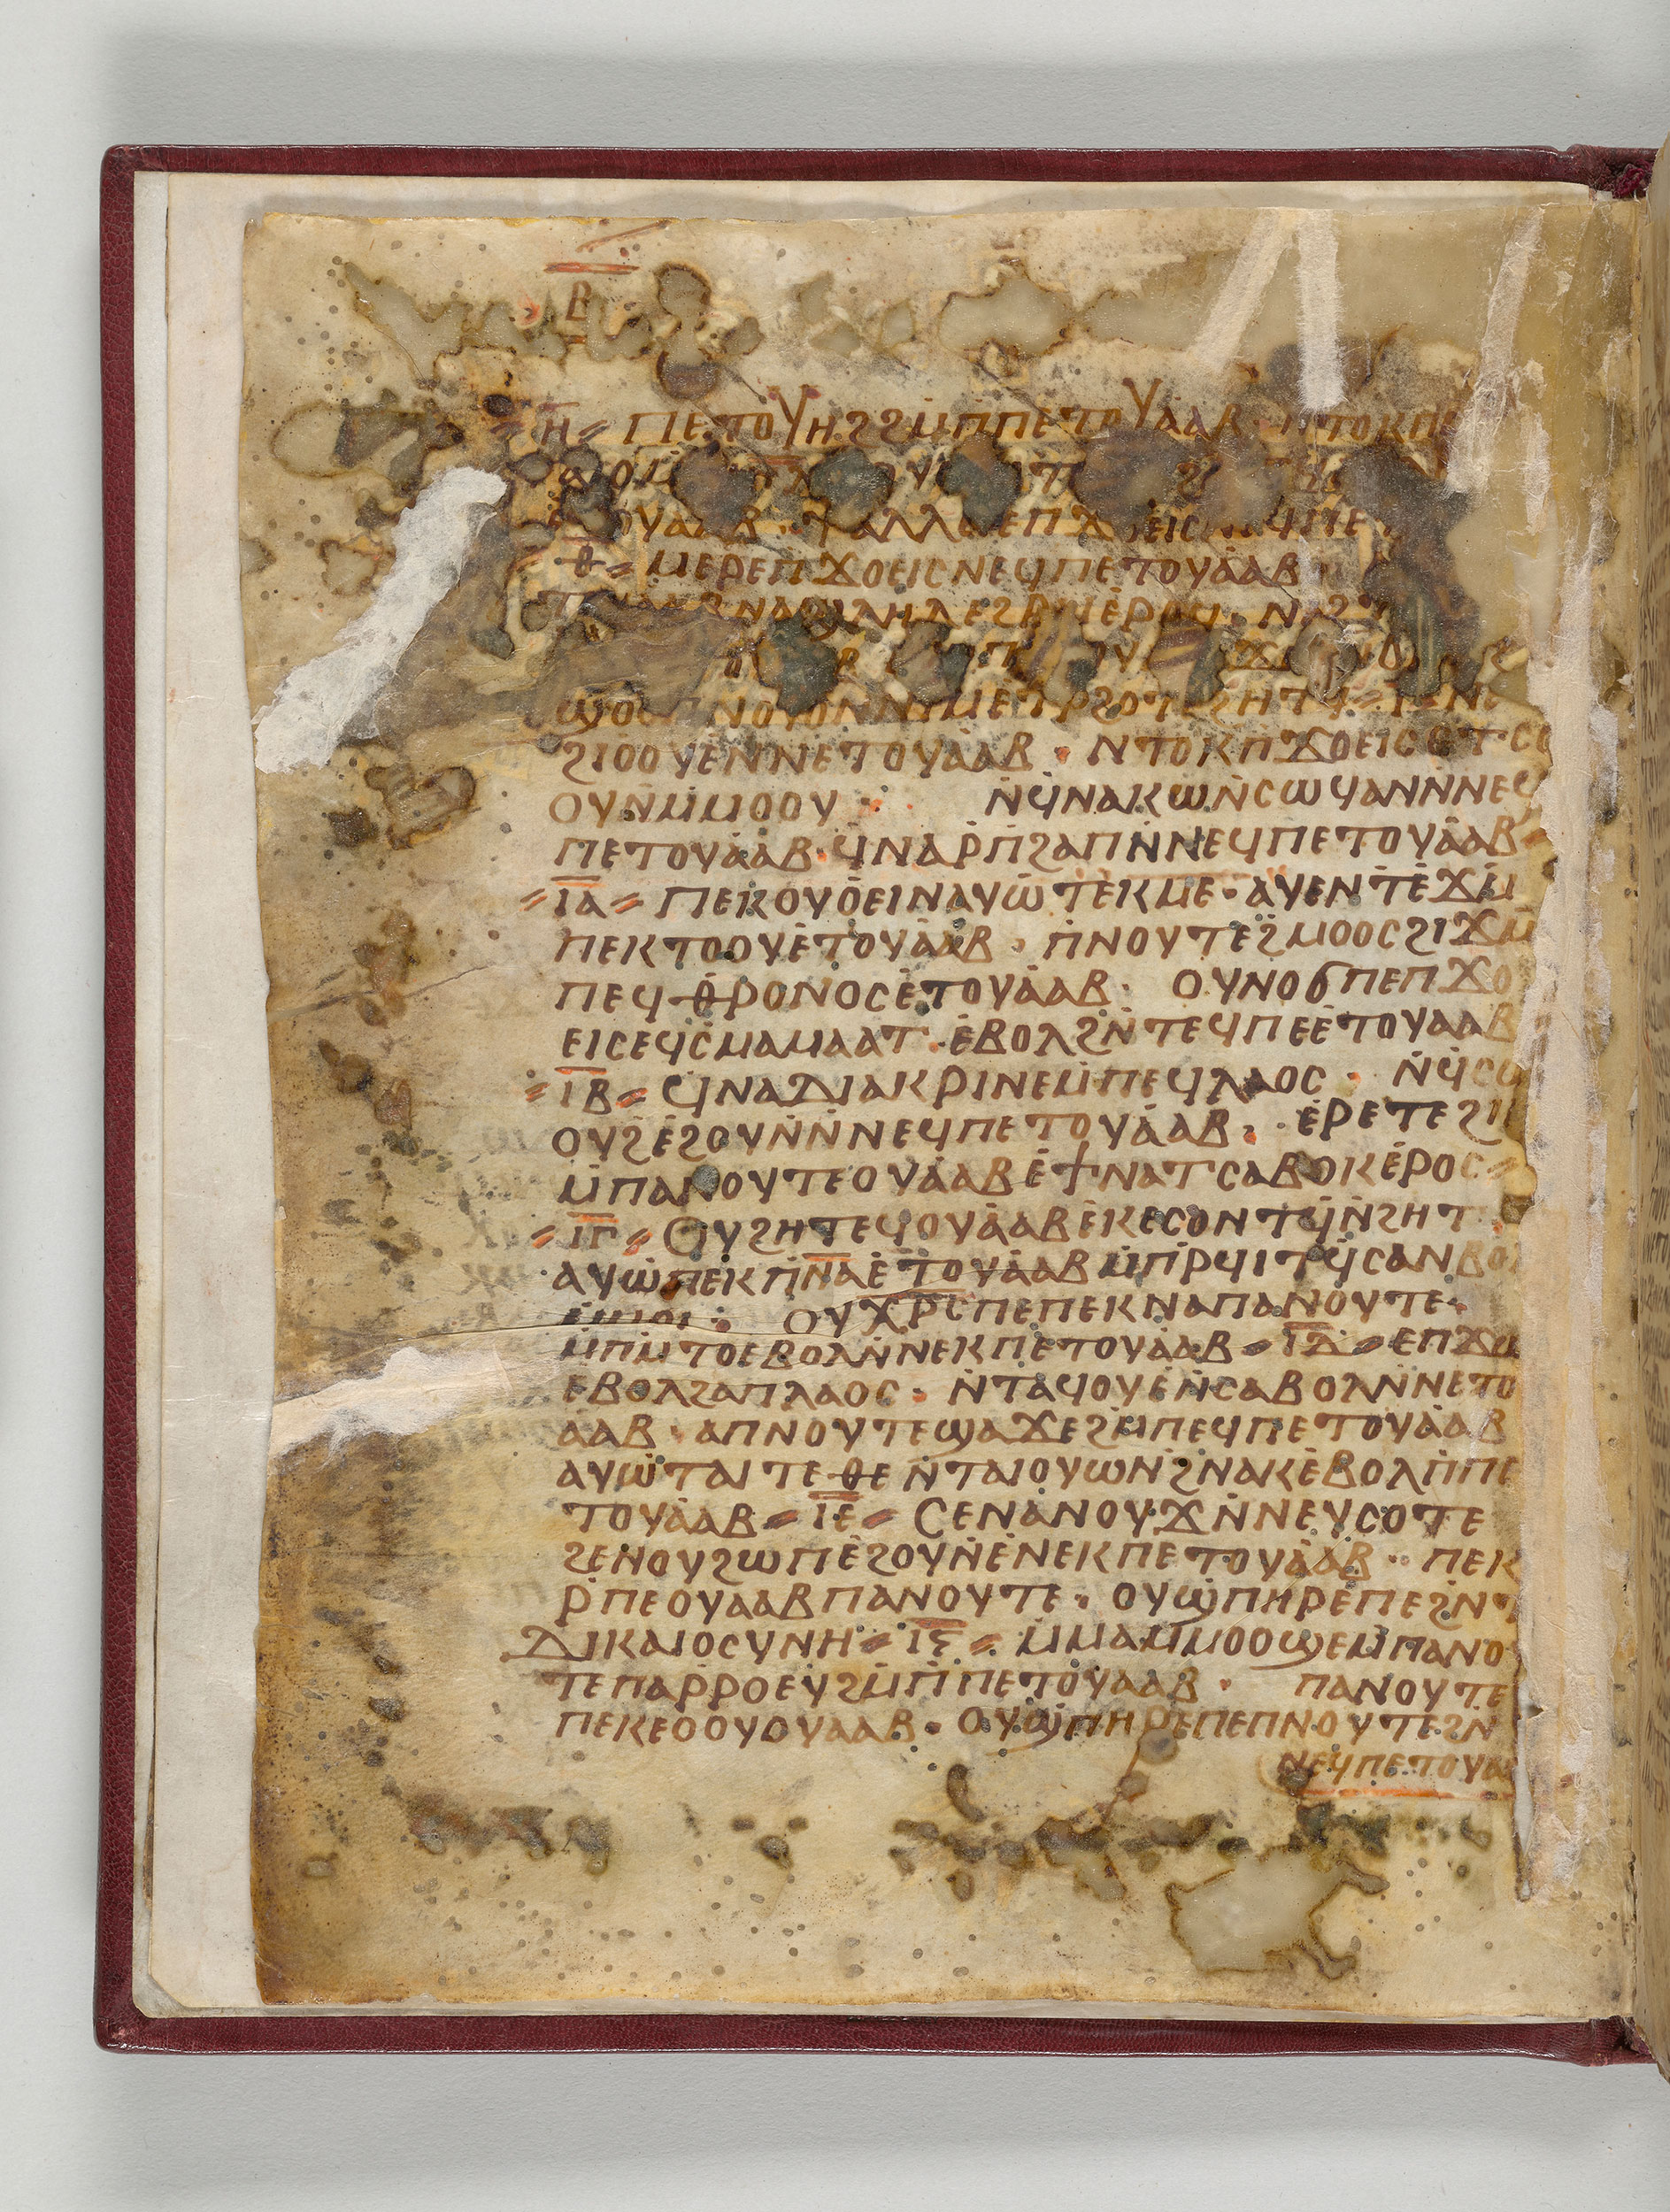 Ⲃ
Ⲏ ⲠⲈⲦⲞⲨⲎϨ ϨⲘⲠⲠⲈⲦⲞⲨⲀⲀⲂ · ⲚⲦⲞⲔⲠ
ⲈⲦⲞⲨⲀⲀⲂ · ⲮⲀⲖⲖⲈⲈⲠϪⲞⲈⲒⲤ
Ⲑ ⲘⲈⲢⲈⲠϪⲞⲈⲒⲤⲚⲈϤⲠⲈⲦⲞⲨⲀⲀⲂ
ⲦⲞⲨⲀⲀⲂⲚⲀϢⲖⲎⲖⲈϨⲢⲀⲒⲈⲢⲞϤ ·
ϢⲞⲞⲠⲚⲞⲨⲞⲚⲚⲒⲘⲈⲦⲢϨⲞⲦⲈϨⲎⲦϤ Ⲓ
ϨⲒⲞⲞⲨⲈⲚⲚⲈⲦⲞⲨⲀⲀⲂ · ⲚⲦⲞⲔⲠϪⲞⲈⲒⲤⲈⲦⲤⲞ
ⲞⲨⲚⲘⲘⲞⲞⲨ · ⲚϤⲚⲀⲔⲰⲚⲤⲰϤⲀⲚⲚⲚⲈϤ
ⲠⲈⲦⲞⲨⲀⲀⲂ · ϤⲚⲀⲢⲠϨⲀⲠⲚⲚⲈϤⲠⲈⲦⲞⲨⲀⲀⲂ
ⲒⲀ ⲠⲈⲔⲞⲨⲞⲈⲒⲚⲀⲨⲰⲦⲈⲔⲘⲈ · ⲀⲨⲈⲚⲦⲈϪⲘ
ⲠⲈⲔⲦⲞⲞⲨⲈⲦⲞⲨⲀⲀⲂ · ⲠⲚⲞⲨⲦⲈϨⲘⲞⲞⲤϨⲒϪⲘ
ⲠⲈϤⲐⲢⲞⲚⲞⲤⲈⲦⲞⲨⲀⲀⲂ · ⲞⲨⲚⲞϬⲠⲈⲠϪⲞ
ⲈⲒⲤⲈϤⲤⲘⲀⲘⲀⲀⲦ · ⲈⲂⲞⲖϨⲚⲦⲈϤⲠⲈⲈⲦⲞⲨⲀⲀⲂ
ⲒⲂ ϤⲚⲀⲆⲒⲀⲔⲢⲒⲚⲈⲘⲠⲈϤⲖⲀⲞⲤ · ⲚϤⲤⲰ
ⲞⲨϨⲈϨⲞⲨⲚⲚⲚⲈϤⲠⲈⲦⲞⲨⲀⲀⲂ · ⲈⲢⲈⲦⲈϨⲒⲎ
ⲘⲠⲀⲚⲞⲨⲦⲈⲞⲨⲀⲀⲂⲈϮⲚⲀⲦⲤⲀⲂⲞⲔⲈⲢⲞⲤ
ⲒⲄ ⲞⲨϨⲎⲦⲈϤⲞⲨⲀⲀⲂⲈⲔⲈⲤⲞⲚⲦϤⲚϨⲎⲦ
ⲀⲨⲰⲠⲈⲔⲠⲚⲀⲈⲦⲞⲨⲀⲀⲂⲘⲠⲢϤⲒⲦϤⲤⲀⲚⲂⲞⲖ
ⲘⲘⲞⲒ : ⲞⲨⲬⲢⲤⲠⲈⲠⲈⲔⲚⲀⲠⲀⲚⲞⲨⲦⲈ ·
ⲘⲠⲘⲦⲞⲈⲂⲞⲖⲚⲚⲈⲔⲠⲈⲦⲞⲨⲀⲀⲂ ⲒⲆ ⲈⲠϪⲰ
ⲈⲂⲞⲖϨⲀⲠⲖⲀⲞⲤ · ⲚⲦⲀϤⲞⲨⲈⲚⲤⲀⲂⲞⲖⲚⲚⲈⲦⲞ
ⲀⲀⲂ · ⲀⲠⲚⲞⲨⲦⲈϢⲀϪⲈϨⲘⲠⲈϤⲠⲈⲦⲞⲨⲀⲀⲂ
ⲀⲨⲰⲦⲀⲒⲦⲈⲐⲈⲚⲦⲀⲒⲞⲨⲰⲚϨⲚⲀⲔⲈⲂⲞⲖⲠⲠⲈ
ⲦⲞⲨⲀⲀⲂ ⲒⲈ ⲤⲈⲚⲀⲚⲞⲨϪⲚⲚⲈⲨⲤⲞⲦⲈ
ϨⲈⲚⲞⲨϨⲰⲠⲈϨⲞⲨⲚⲈⲚⲈⲔⲠⲈⲦⲞⲨⲀⲀⲂ · ⲠⲈⲔ
ⲢⲠⲈⲞⲨⲀⲀⲂⲠⲀⲚⲞⲨⲦⲈ · ⲞⲨϢⲠⲎⲢⲈⲠⲈϨⲚⲦ
ⲆⲒⲔⲀⲒⲞⲤⲨⲚⲎ ⲒⲊ ⲘⲘⲀⲘⲘⲞⲞϢⲈⲘⲠⲀⲚⲞ
ⲦⲈⲠⲀⲢⲢⲞⲈⲨϨⲘⲠⲠⲈⲦⲞⲨⲀⲀⲂ · ⲠⲀⲚⲞⲨⲦⲈ
ⲠⲈⲔⲈⲞⲞⲨⲞⲨⲀⲀⲂ · ⲞⲨϢⲠⲎⲢⲈⲠⲈⲠⲚⲞⲨⲦⲈϨⲚ
ⲚⲈϤⲠⲈⲦⲞⲨⲀ